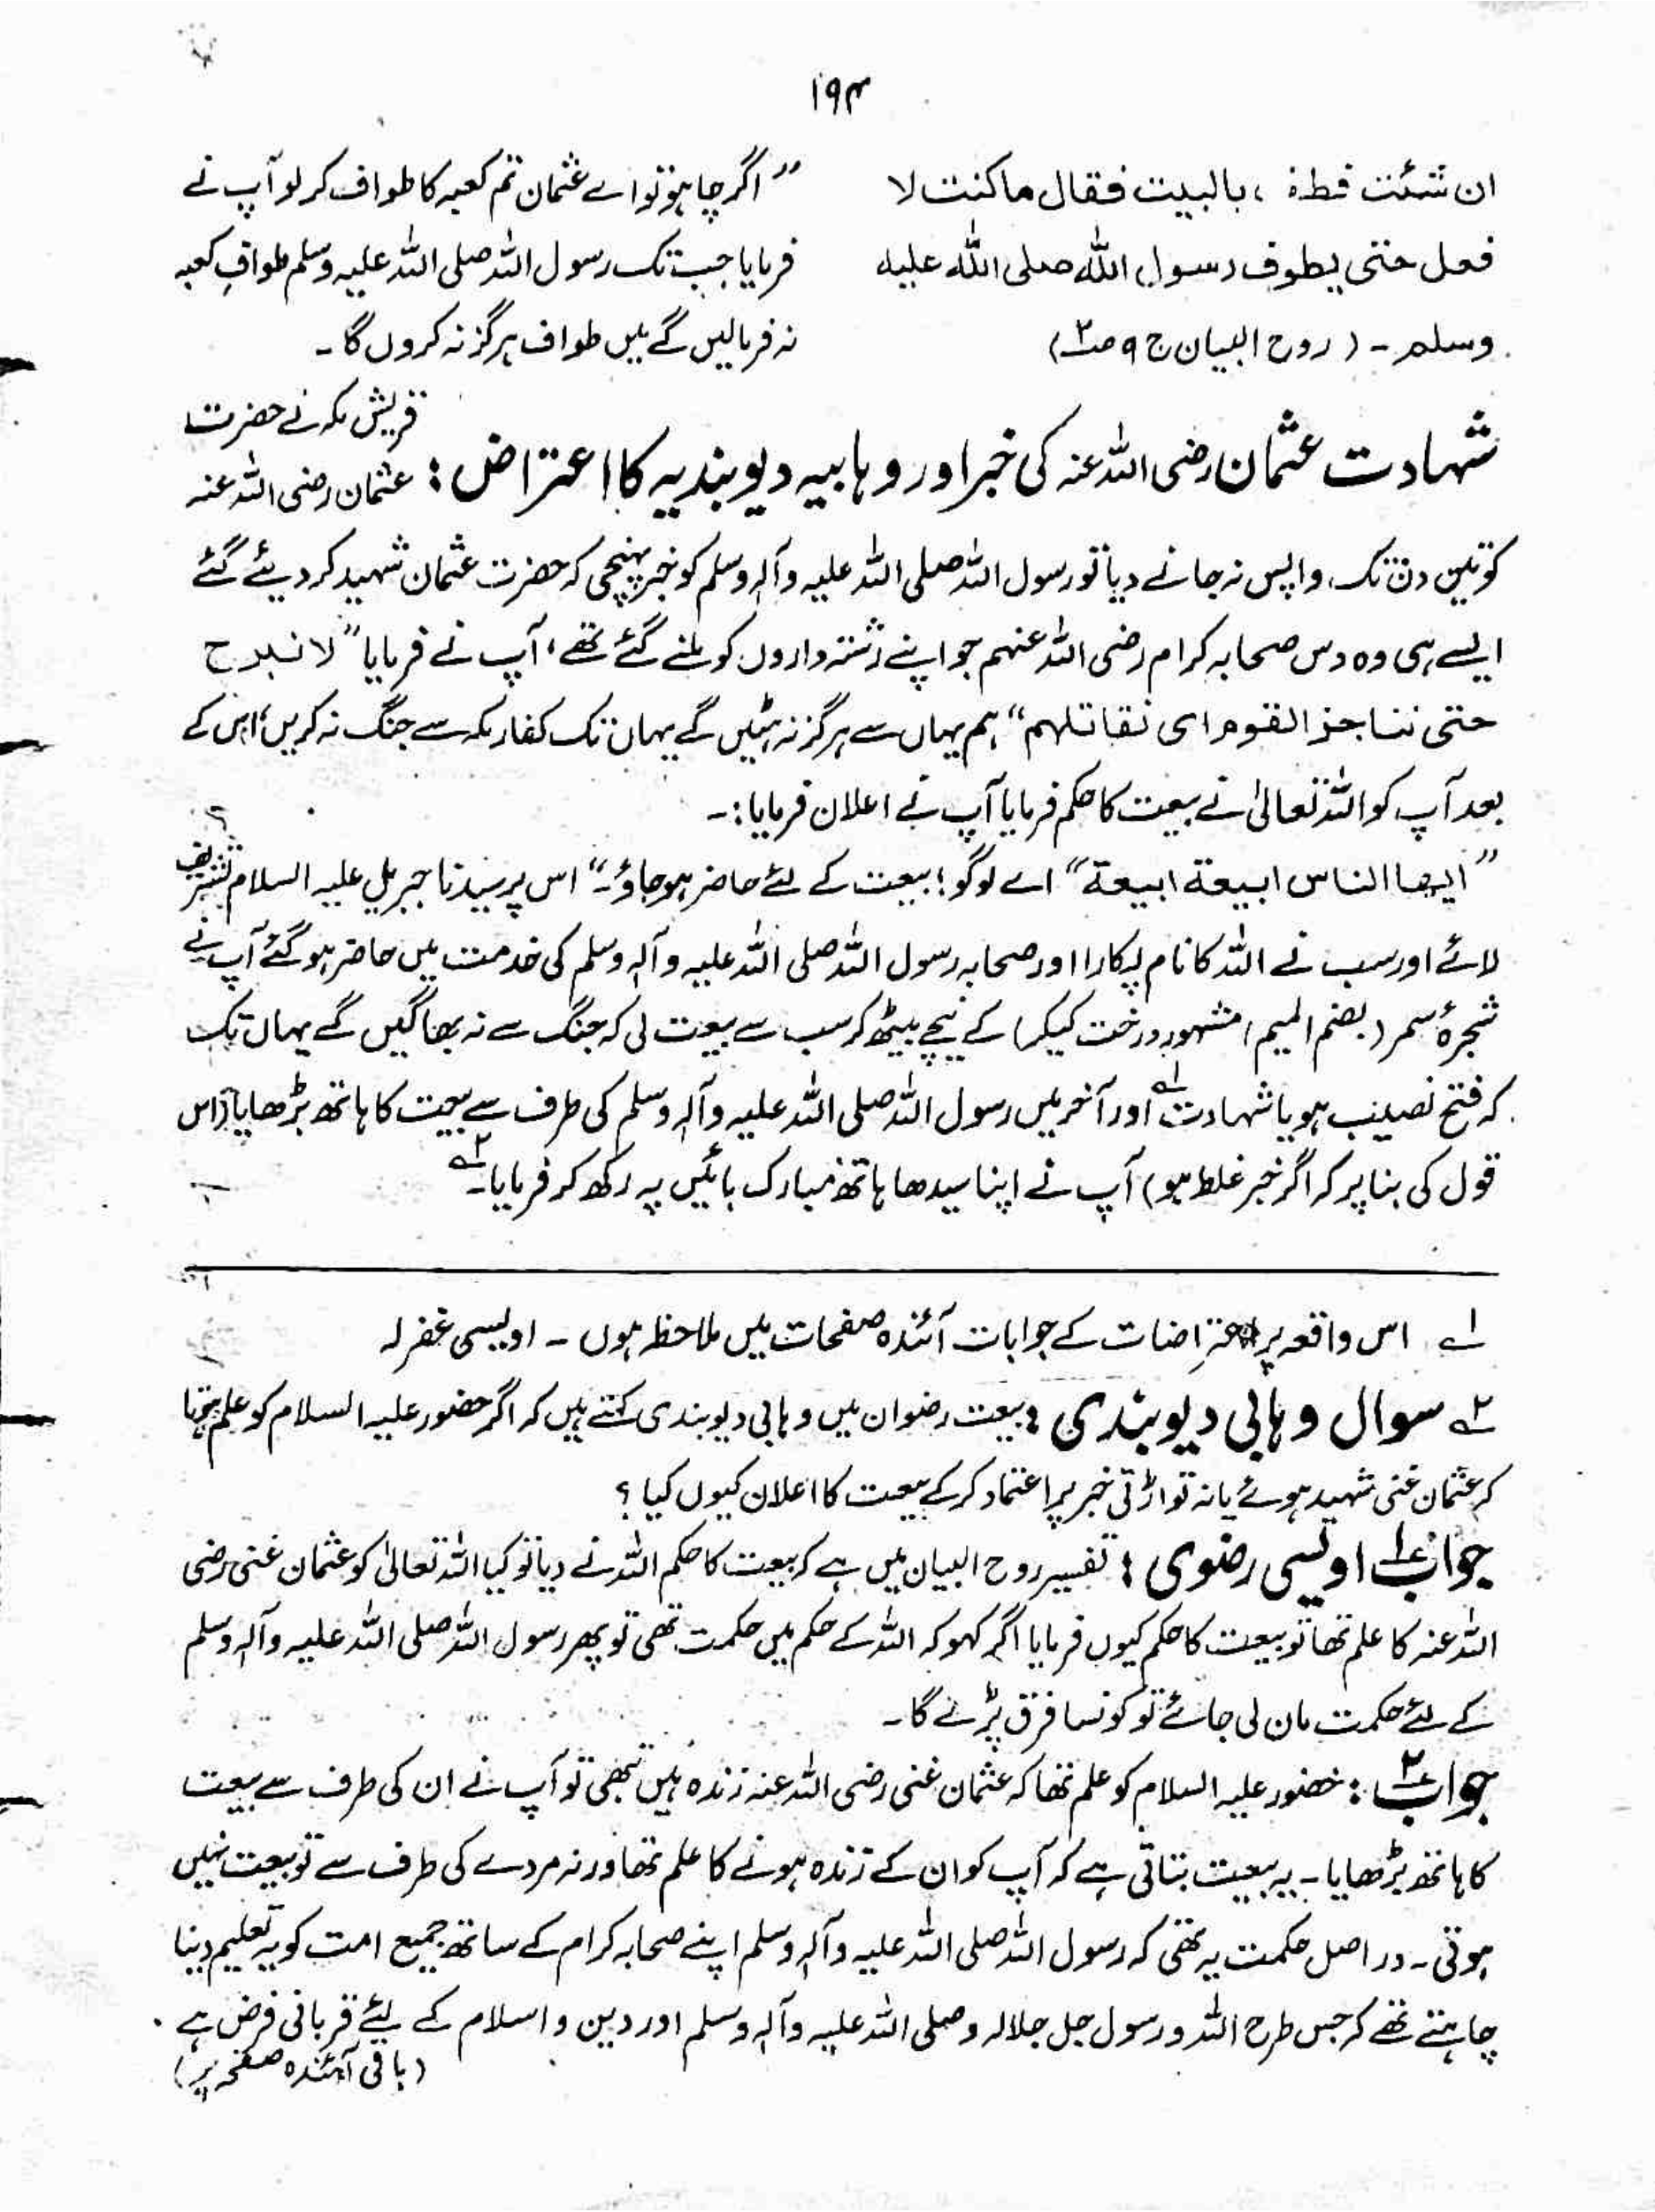 ۱۹۴
ان شئت فطف بالبیت فقال ماکنت لا
فعل حتی یطوف رسول اللہ صلی اللہ علیہ
وسلم ۔ (روح البیان ج ۹ ص۲)
”اگر چاہو تو اے عثمان تم کعبہ کا طواف کر لو آپ نے
فرمایا جب تک رسول اللہ صلی اللہ علیہ وسلم طوافِ کعبہ
نہ فرمالیں گے میں طواف ہرگز نہ کروں گا ۔
شہادت عثمان رضی اللہ عنہ کی خبر اور وہابیہ دیوبندیہ کا اعتراض :
قریش مکہ نے حضرت
عثمان رضی اللہ عنہ
کو تین دن تک واپس نہ جانے دیا تو رسول اللہ صلی اللہ علیہ وآلہٖ وسلم کو خبر پہنچی کہ حضرت عثمان شہید کر دیئے گئے
ایسے ہی وہ دس صحابہ کرام رضی اللہ عنہم جو اپنے رشتہ داروں کو ملنے گئے تھے، آپ نے فرمایا ”لا نبرح
حتی نناجز القوم ای نقاتلہم“ ہم یہاں سے ہرگز نہ ہٹیں گے یہاں تک کفار مکہ سے جنگ نہ کریں، اس کے
بعد آپ کو اللہ تعالیٰ نے بیعت کا حکم فرمایا آپ نے اعلان فرمایا :۔
”ایہا الناس ابیعة ابیعة“ اے لوگو! بیعت کے لئے حاضر ہو جاؤ۔“ اس پر سیدنا جبریل علیہ السلام تشریف
لائے اور سب نے اللہ کا نام پکارا اور صحابہ رسول اللہ صلی اللہ علیہ وآلہٖ وسلم کی خدمت میں حاضر ہو گئے آپ نے
شجرۂ سمر (بضم المیم) مشہور درخت کیکر) کے نیچے بیٹھ کر سب سے بیعت لی کہ جنگ سے نہ بھاگیں گے یہاں تک
کہ فتح نصیب ہو یا شہادت ۱؎ اور آخر میں رسول اللہ صلی اللہ علیہ وآلہٖ وسلم کی طرف سے بیعت کا ہاتھ بڑھایا (اس
قول کی بنا پر کہ اگر خبر غلط ہو) آپ نے اپنا سیدھا ہاتھ مبارک بائیں پہ رکھ کر فرمایا۔ ۲؎
۱؎ اس واقعہ پر اعتراضات کے جوابات آئندہ صفحات میں ملاحظہ ہوں ۔ اویسی غفرلہ
۲؎ سوال وہابی دیوبندی : بیعت رضوان میں وہابی دیوبندی کہتے ہیں کہ اگر حضور علیہ السلام کو علم ہوتا
کہ عثمان غنی شہید ہوئے یا نہ تو اڑتی خبر پر اعتماد کر کے بیعت کا اعلان کیوں کیا ؟
جواب۱ اویسی رضوی : تفسیر روح البیان میں ہے کہ بیعت کا حکم اللہ نے دیا تو کیا اللہ تعالیٰ کو عثمان غنی رضی
اللہ عنہ کا علم تھا تو بیعت کا حکم کیوں فرمایا اگر کہو کہ اللہ کے حکم میں حکمت تھی تو پھر رسول اللہ صلی اللہ علیہ وآلہٖ وسلم
کے لئے حکمت مان لی جائے تو کونسا فرق پڑے گا ۔
جواب۲ : حضور علیہ السلام کو علم تھا کہ عثمان غنی رضی اللہ عنہ زندہ ہیں تبھی تو آپ نے ان کی طرف سے بیعت
کا ہاتھ بڑھایا ۔ یہ بیعت بتاتی ہے کہ آپ کو ان کے زندہ ہونے کا علم تھا ورنہ مردے کی طرف سے تو بیعت نہیں
ہوتی ۔ در اصل حکمت یہ تھی کہ رسول اللہ صلی اللہ علیہ وآلہٖ وسلم اپنے صحابہ کرام کے ساتھ جمیع امت کو یہ تعلیم دینا
چاہتے تھے کہ جس طرح اللہ و رسول جل جلالہ وصلی اللہ علیہ وآلہٖ وسلم اور دین و اسلام کے لیے قربانی فرض ہے
(باقی آئندہ صفحہ پر)